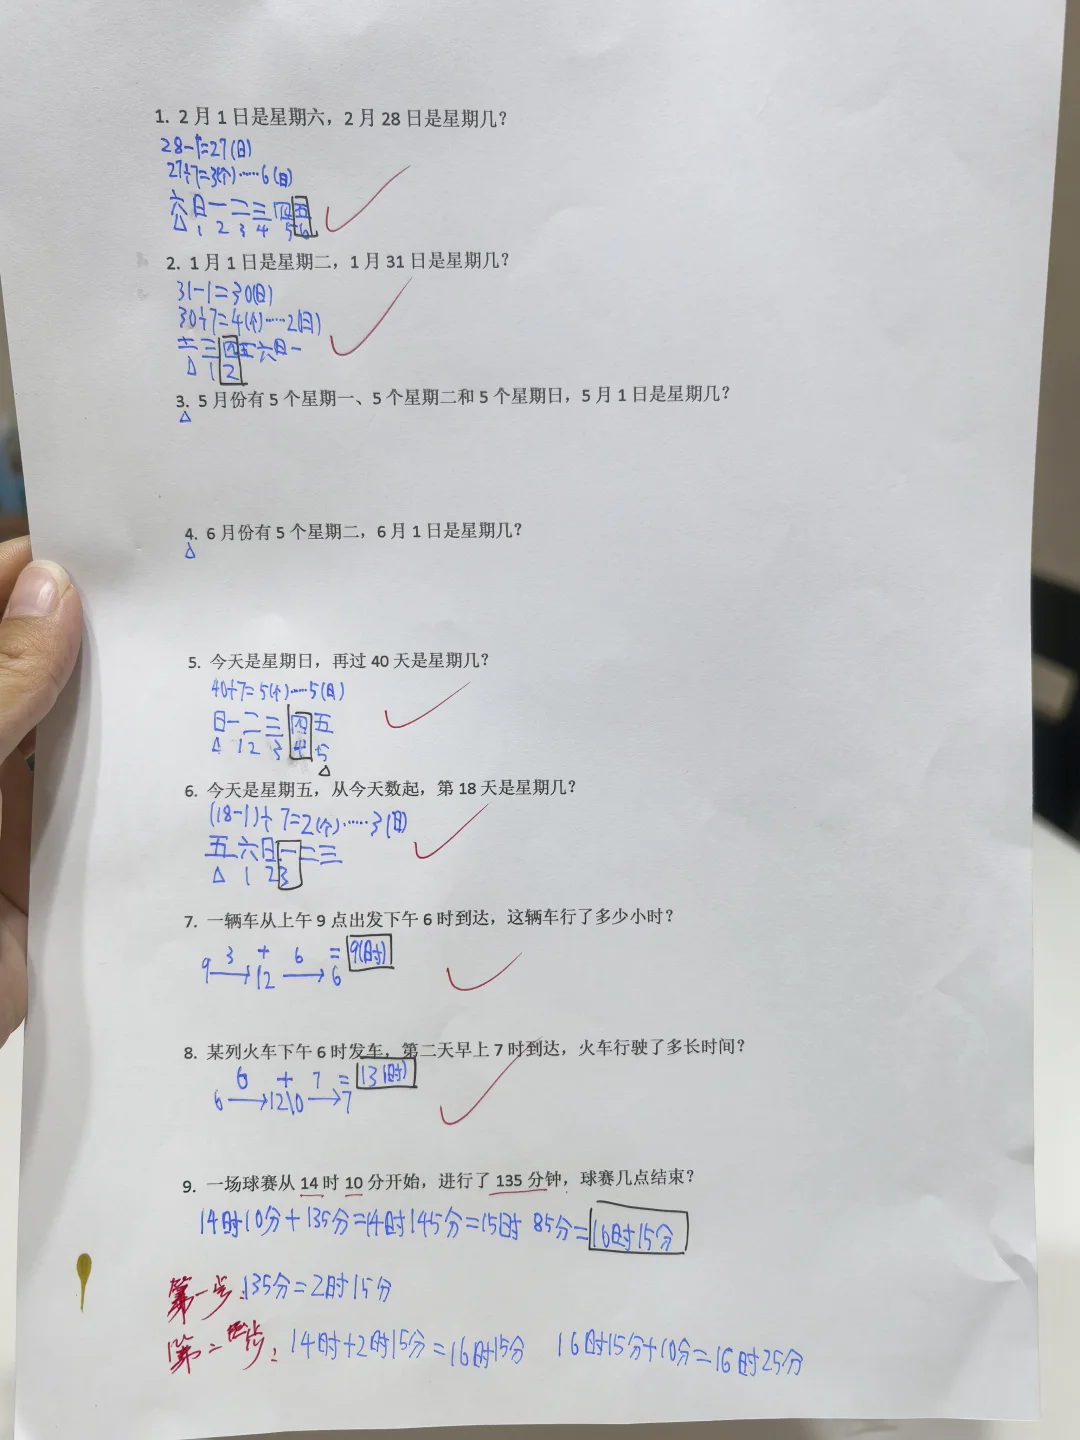 1. 2月1日是星期六，2月28日是星期几？
28-1=27(日)
27÷7=3(个)……6(日)
六日一二三四五
△ 1 2 3 4 5 6
2. 1月1日是星期二，1月31日是星期几？
31-1=30(日)
30÷7=4(个)……2(日)
二三四五六日一
△ 1 2
3. 5月份有5个星期一、5个星期二和5个星期日，5月1日是星期几？
△
4. 6月份有5个星期二，6月1日是星期几？
△
5. 今天是星期日，再过40天是星期几？
40÷7=5(个)……5(日)
日一二三四五
△ 1 2 3 4 5
△
6. 今天是星期五，从今天数起，第18天是星期几？
(18-1)÷7=2(个)……3(日)
五六日一二三
△ 1 2 3
7. 一辆车从上午9点出发下午6时到达，这辆车行了多少小时？
3 + 6 = 9(时)
9→12→6
8. 某列火车下午6时发车，第二天早上7时到达，火车行驶了多长时间？
6 + 7 = 13(时)
6→12\0→7
9. 一场球赛从14时10分开始，进行了135分钟，球赛几点结束？
14时10分+135分=14时145分=15时85分=16时15分
第一步:135分=2时15分
第二步:14时+2时15分=16时15分 16时15分+10分=16时25分